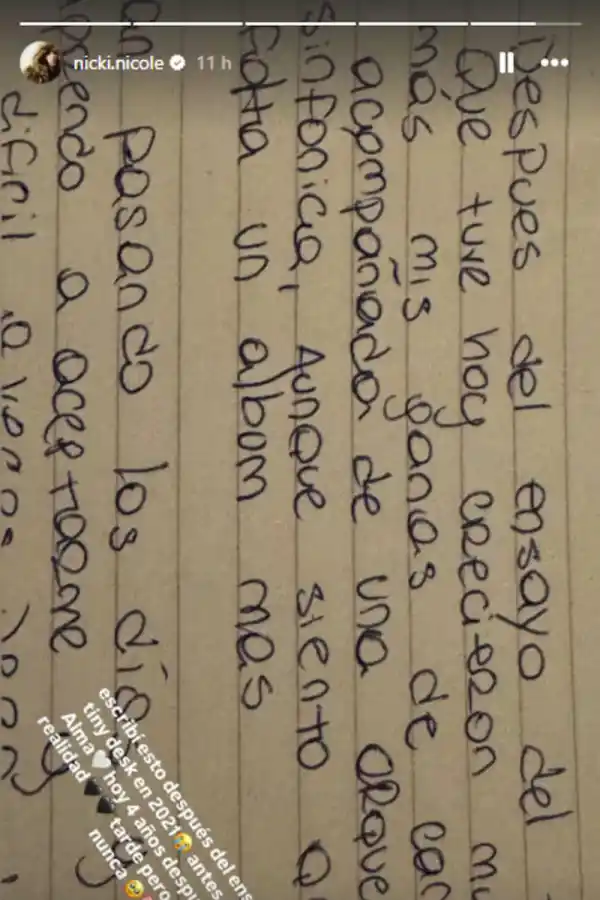 nicki.nicole 11 h
Despues del ensayo del
Que tuve hoy crecieron mu
más mis ganas de can
acompañada de una orque
sinfonica, Aunque siento q
falta un album mas
an pasando los días y
endo a aceptarme y
dificil a veces
escribí esto después del ens
tiny desk en 2021😭 antes
Alma🤍 hoy 4 años despu
realidad🖤🖤 tarde pero
nunca🥹